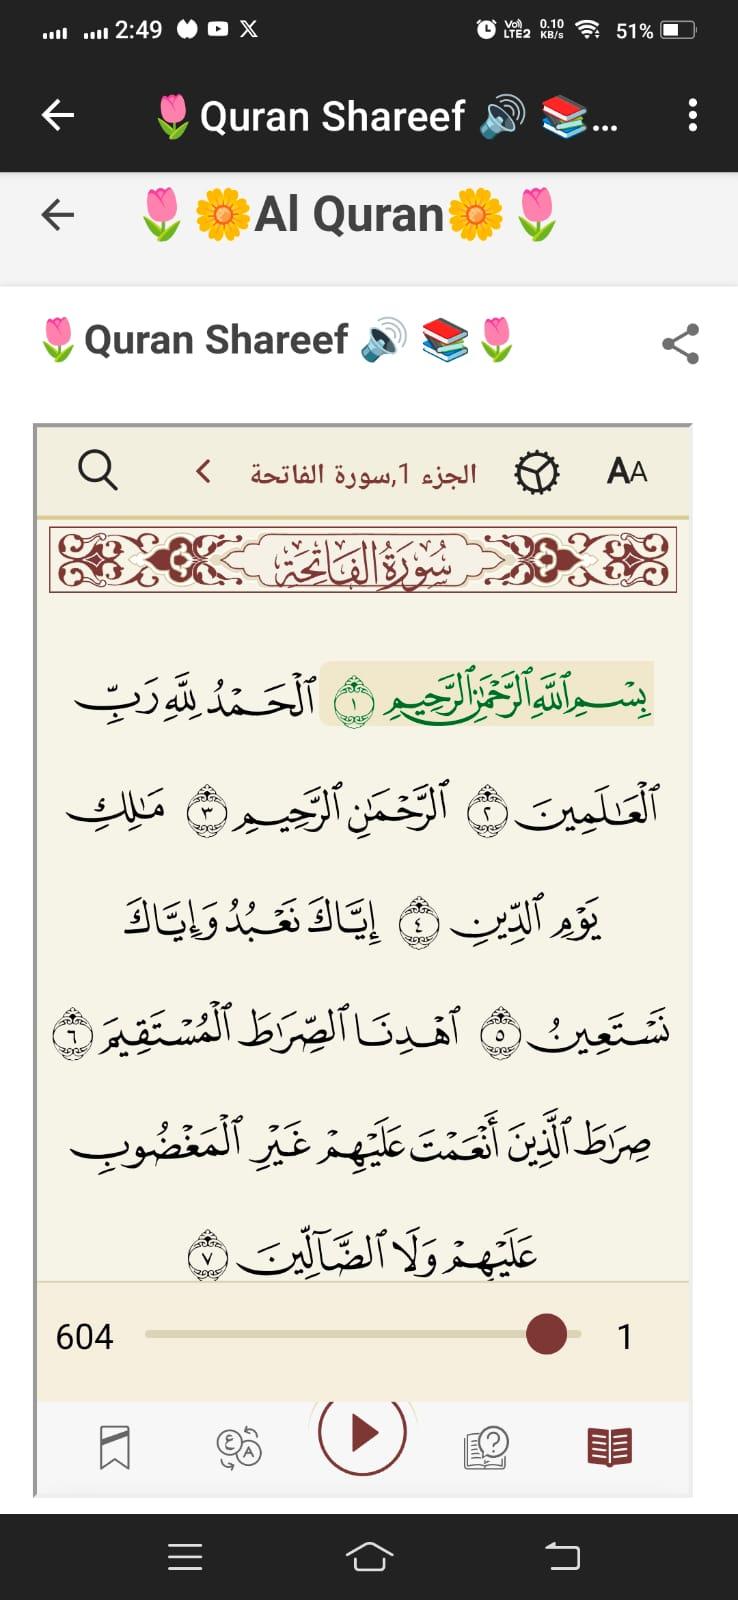 2:49 X Vo) LTE2 0.10 KB/s 51%
🌷Quran Shareef 🔊 📚...
🌷🌼Al Quran🌼🌷
🌷Quran Shareef 🔊 📚🌷
الجزء 1,سورة الفاتحة AA
سُورَةُ الفَاتِحَةِ
بِسْمِ ٱللَّهِ ٱلرَّحْمَٰنِ ٱلرَّحِيمِ ١ ٱلْحَمْدُ لِلَّهِ رَبِّ
ٱلْعَٰلَمِينَ ٢ ٱلرَّحْمَٰنِ ٱلرَّحِيمِ ٣ مَٰلِكِ
يَوْمِ ٱلدِّينِ ٤ إِيَّاكَ نَعْبُدُ وَإِيَّاكَ
نَسْتَعِينُ ٥ ٱهْدِنَا ٱلصِّرَٰطَ ٱلْمُسْتَقِيمَ ٦
صِرَٰطَ ٱلَّذِينَ أَنْعَمْتَ عَلَيْهِمْ غَيْرِ ٱلْمَغْضُوبِ
عَلَيْهِمْ وَلَا ٱلضَّآلِّينَ ٧
604 1
ع A ?